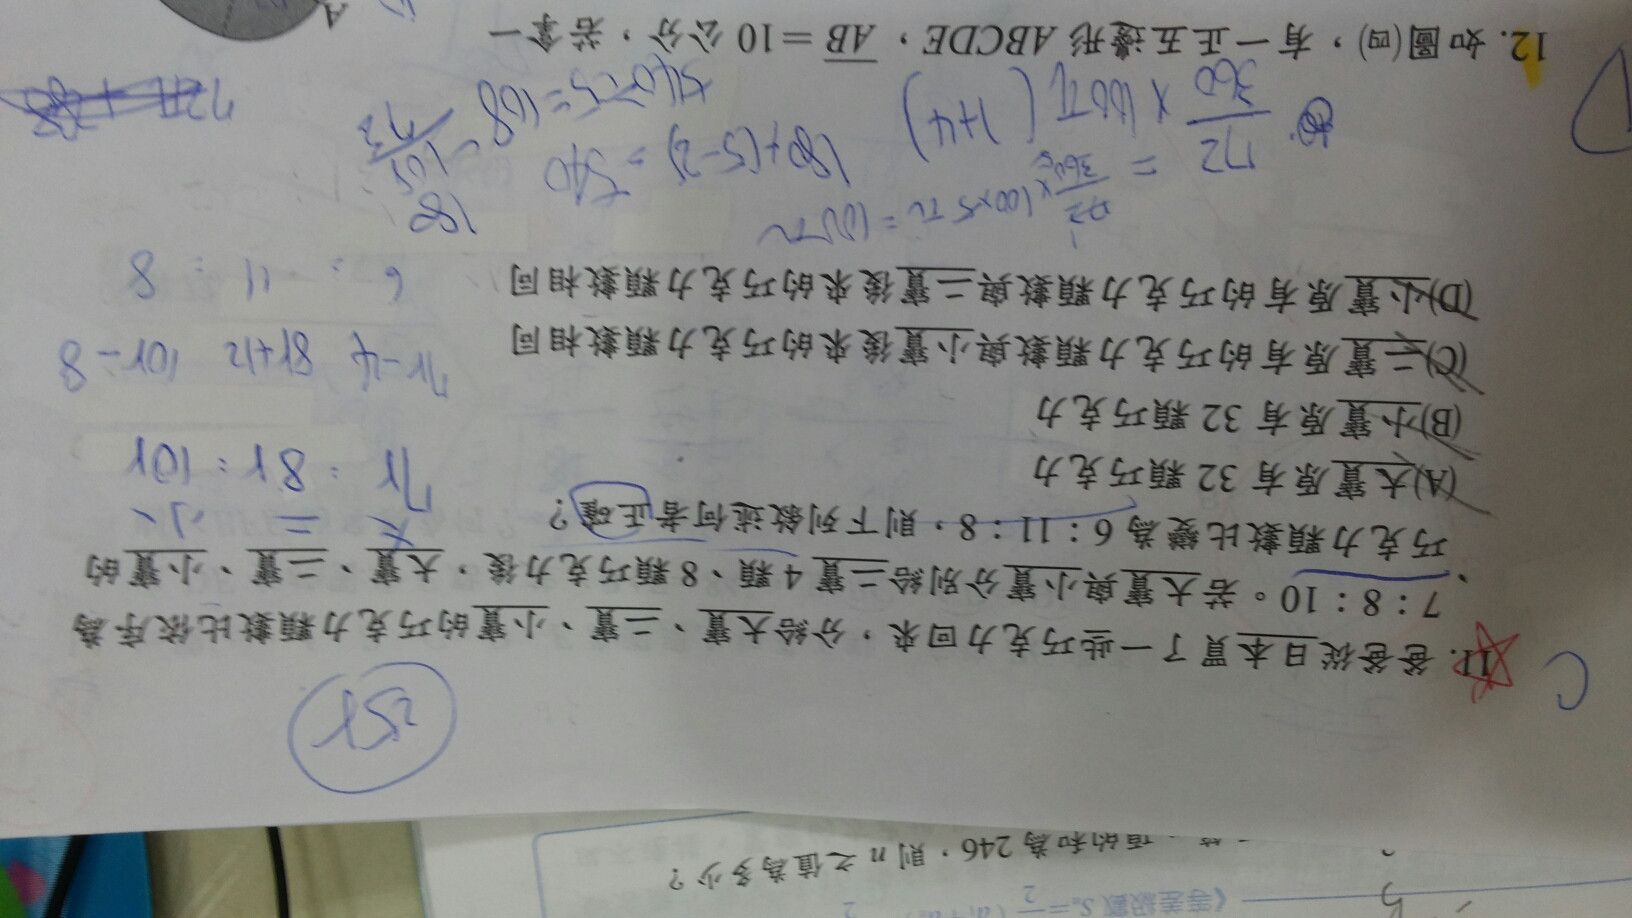 《等差級數 Sn=
項的和為 246,則 n 之值為多少?
25r
C
11. 爸爸從日本買了一些巧克力回來,分給大寶、二寶、小寶的巧克力顆數比依序為
7:8:10。若大寶與小寶分別給二寶 4 顆、8 顆巧克力後,大寶、二寶、小寶的
巧克力顆數比變為 6:11:8,則下列敘述何者正確?
大 二 小
(A)大寶原有 32 顆巧克力
7r : 8r : 10r
(B)小寶原有 32 顆巧克力
(C)二寶原有的巧克力顆數與小寶後來的巧克力顆數相同
7r-4 8r+12 10r-8
(D)小寶原有的巧克力顆數與二寶後來的巧克力顆數相同
6 : 11 : 8
72/360 × 100×5π = 100π
180
72/360 × 100π (1+4)
180×(5-2) = 540
540÷5=108
D
12. 如圖(四),有一正五邊形 ABCDE,AB=10 公分,若拿一
A